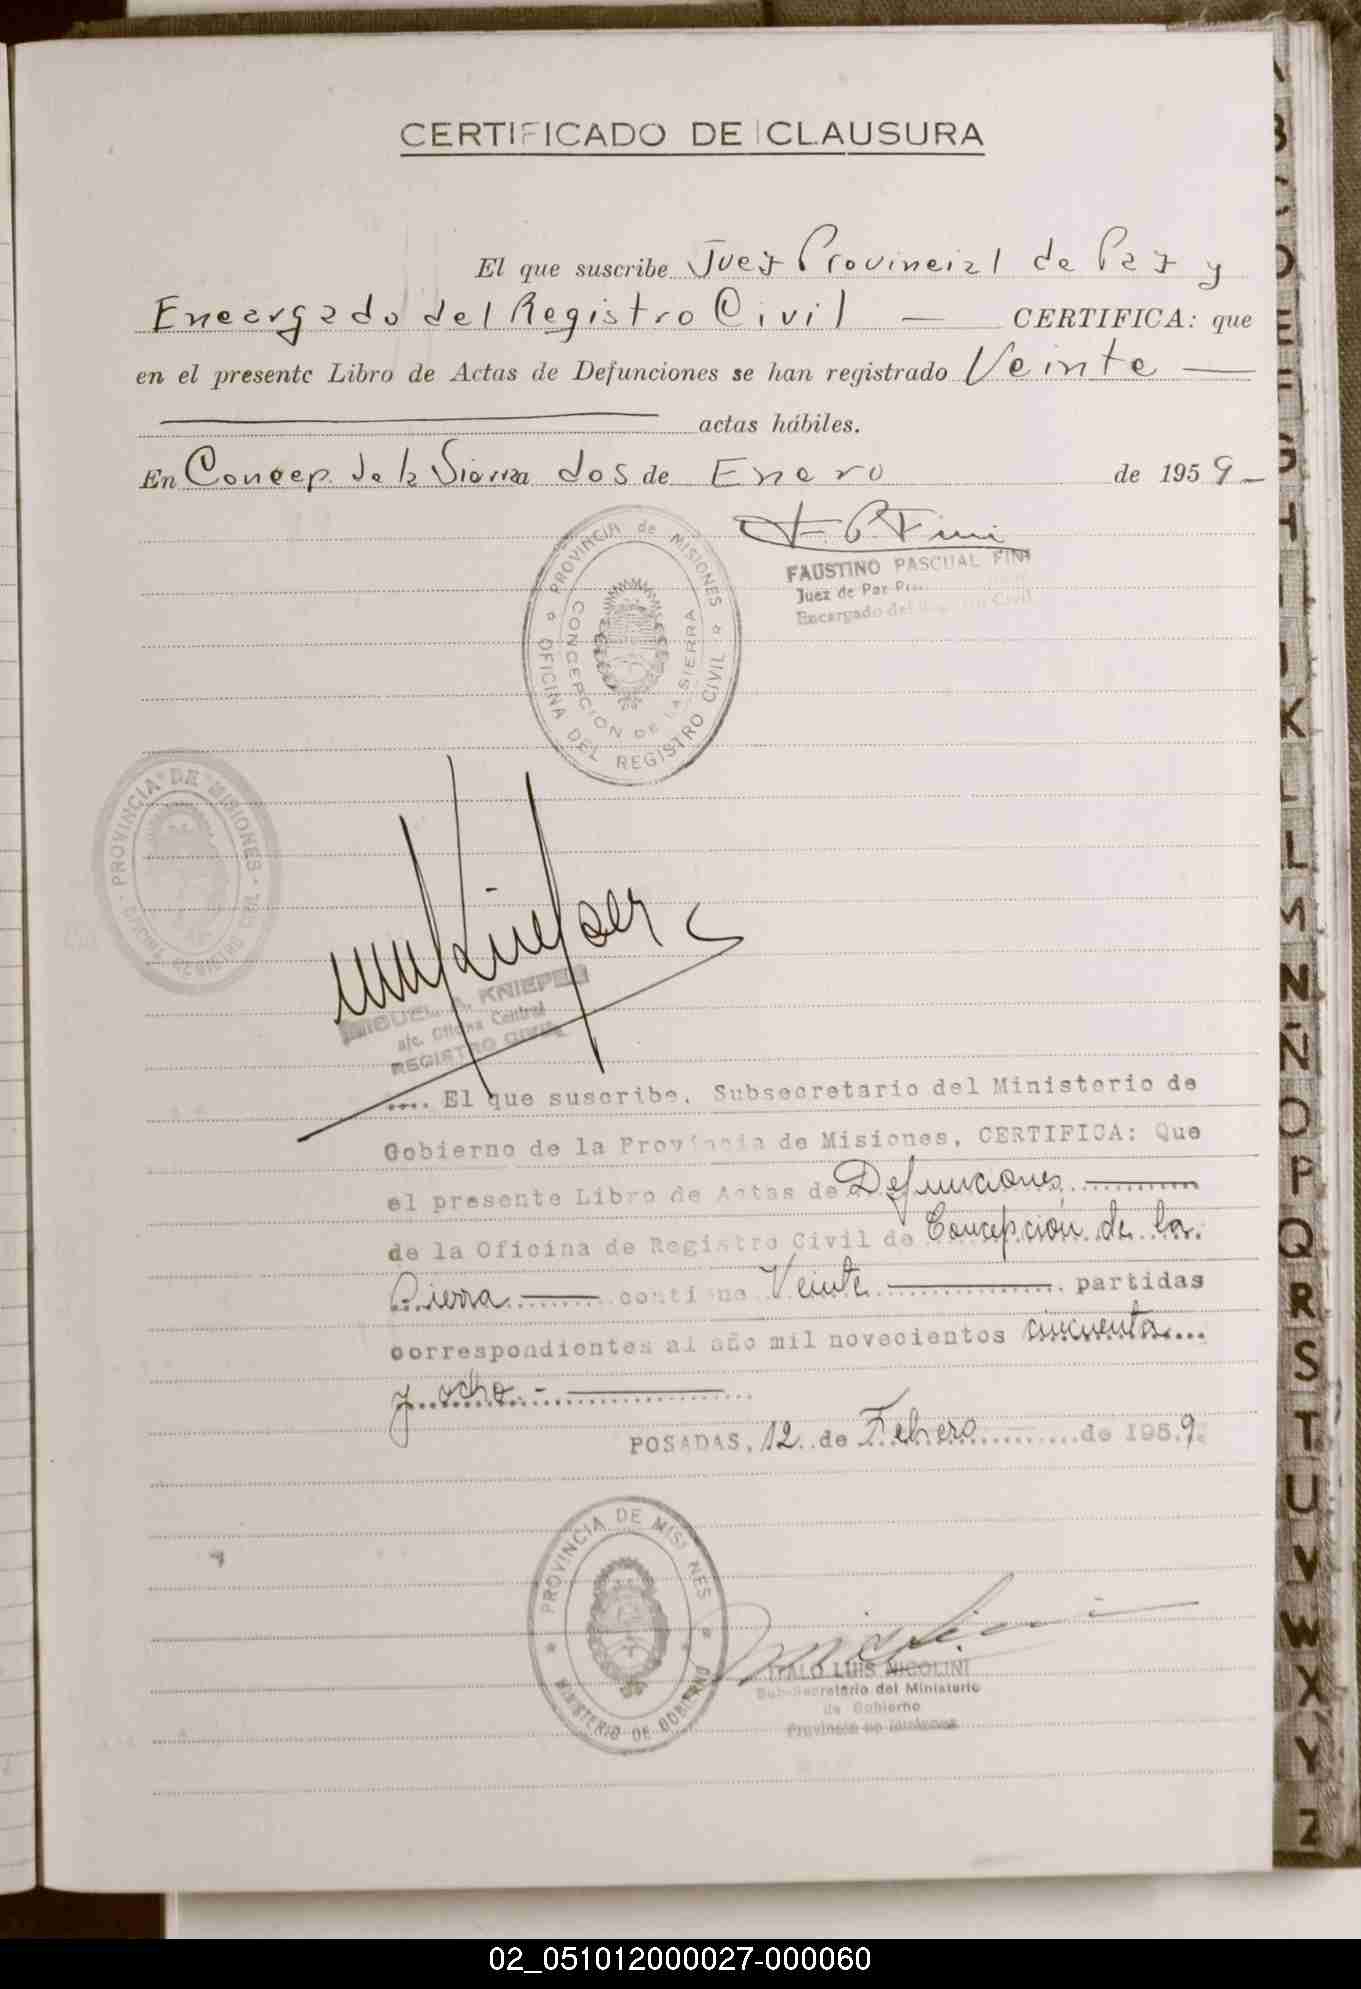 CERTIFICADO DE CLAUSURA
El que suscribe Juez Provincial de Paz y
Encargado del Registro Civil — CERTIFICA: que
en el presente Libro de Actas de Defunciones se han registrado Veinte —
actas hábiles.
En Concep. de la Sierra dos de Enero de 1959 -
F. P. Fini
FAUSTINO PASCUAL FINI
Juez de Paz
Encargado del Registro Civil
PROVINCIA de MISIONES
CONCEPCION DE LA SIERRA
OFICINA DEL REGISTRO CIVIL
PROVINCIA DE MISIONES
REGISTRO CIVIL
MIGUEL A. KNIEPER
a/c. Oficina Central
REGISTRO CIVIL
.... El que suscribe, Subsecretario del Ministerio de
Gobierno de la Provincia de Misiones, CERTIFICA: Que
el presente Libro de Actas de Defunciones
de la Oficina de Registro Civil de Concepción de la
Sierra contiene Veinte partidas
correspondientes al año mil novecientos cincuenta
y ocho.-
POSADAS, 12 de Febrero de 1959.
PROVINCIA DE MISIONES
MINISTERIO DE GOBIERNO
ITALO LUIS NICOLINI
Sub-Secretario del Ministerio
de Gobierno
Provincia de Misiones
A
B
C
D
E
F
G
H
I
J
K
L
L
M
N
Ñ
O
P
Q
R
S
T
U
V
W
X
Y
Z
02_051012000027-000060